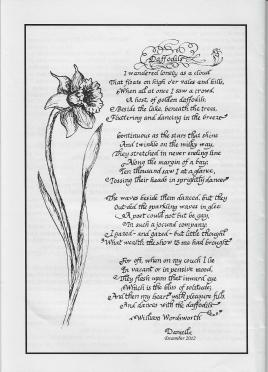 Daffodils
I wandered lonely as a cloud
That floats on high o'er vales and hills,
When all at once I saw a crowd,
A host, of golden daffodils;
Beside the lake, beneath the trees,
Fluttering and dancing in the breeze
Continuous as the stars that shine
And twinkle on the milky way,
They stretched in never ending line
Along the margin of a bay;
Ten thousand saw I at a glance,
Tossing their heads in sprightly dance
The waves beside them danced, but they
Out-did the sparkling waves in glee:
A poet could not but be gay,
In such a jocund company:
I gazed - and gazed - but little thought
What wealth the show to me had brought
For oft, when on my couch I lie
In vacant or in pensive mood,
They flash upon that inward eye
Which is the bliss of solitude;
And then my heart with pleasure fills,
And dances with the daffodils
William Wordsworth
Danielle
December 2012